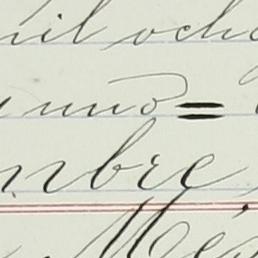 mil ocho
uno =
mbre
Mé